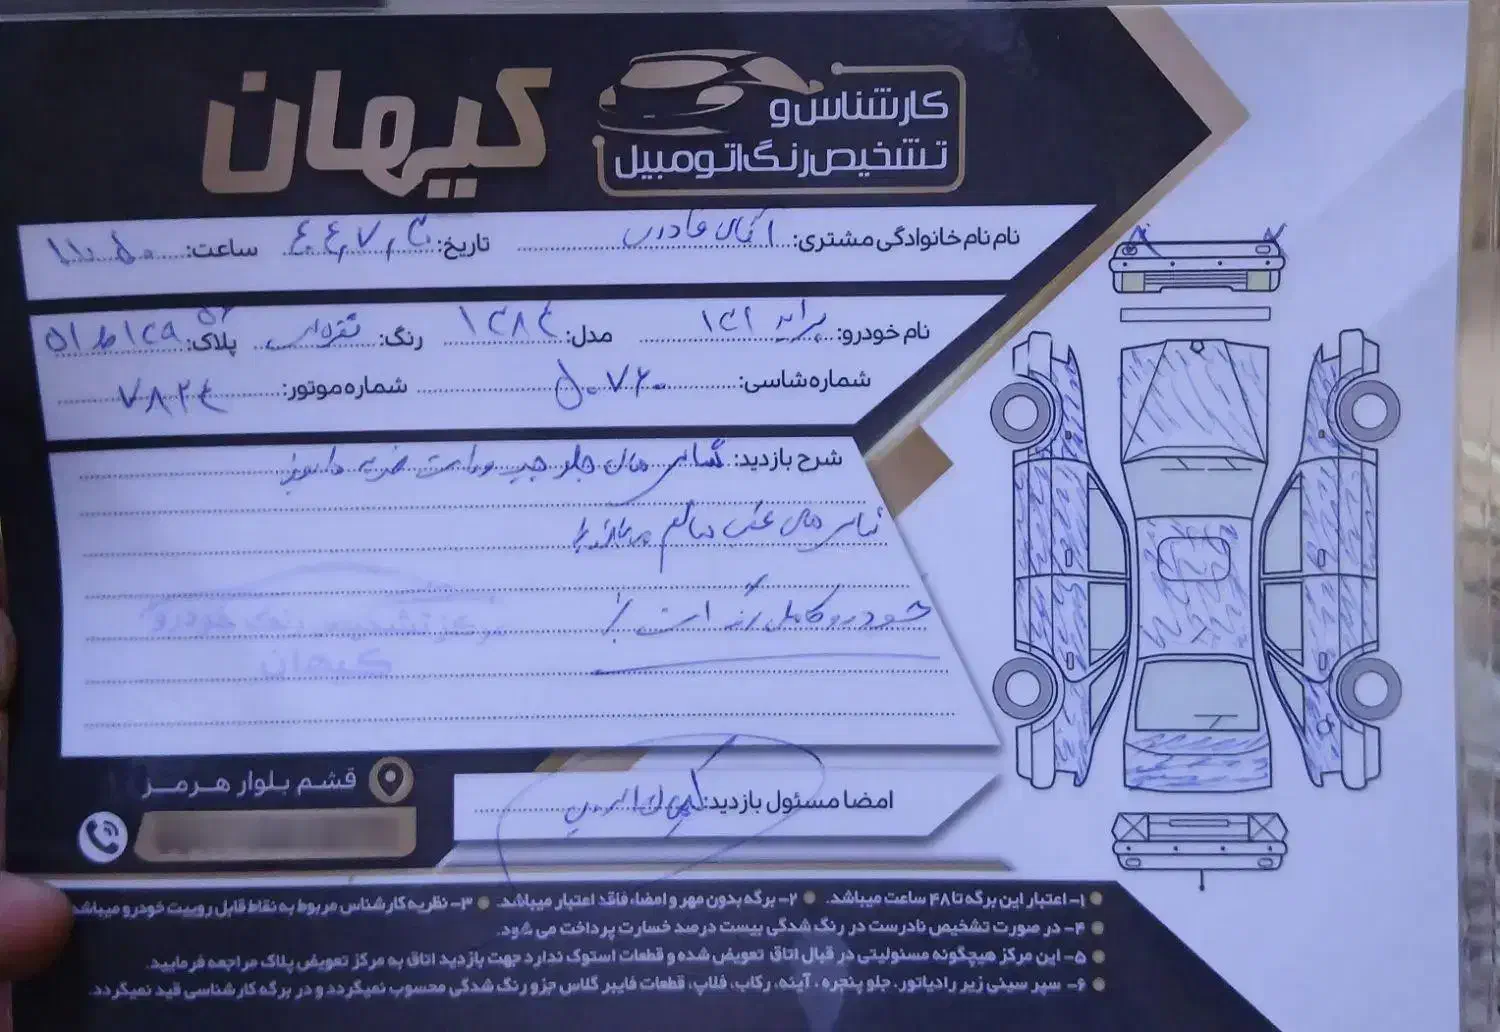 کارشناس و
تشخیص رنگ اتومبیل
کیهان
نام نام خانوادگی مشتری: آقای قادری تاریخ: ۴۰۴,۷,۳ ساعت:
نام خودرو: پراید ۱۳۱ مدل: ۱۳۸۴ رنگ: نقره‌ای پلاک:
شماره شاسی: ۵۰۷۶۰ شماره موتور: ۷۸۲۴
شرح بازدید: شاسی های جلو چپ و راست ضربه دارد
شاسی های عقب سالم میباشد
خودرو کامل رنگ است
مرکز تشخیص رنگ خودرو
کیهان
امضا مسئول بازدید:
قشم بلوار هرمز
۱- اعتبار این برگه تا ۴۸ ساعت میباشد. ۲- برگه بدون مهر و امضاء فاقد اعتبار میباشد. ۳- نظریه کارشناس مربوط به نقاط قابل روییت خودرو میباشد
۴- در صورت تشخیص نادرست در رنگ شدگی بیست درصد خسارت پرداخت می شود.
۵- این مرکز هیچگونه مسئولیتی در قبال اتاق تعویض شده و قطعات استوک ندارد جهت بازدید اتاق به مرکز تعویض پلاک مراجعه فرمایید.
۶- سپر سینی زیر رادیاتور، جلو پنجره، آینه، رکاب، فلاپ، قطعات فایبر گلاس جزو رنگ شدگی محسوب نمیگردد و در برگه کارشناسی قید نمیگردد.